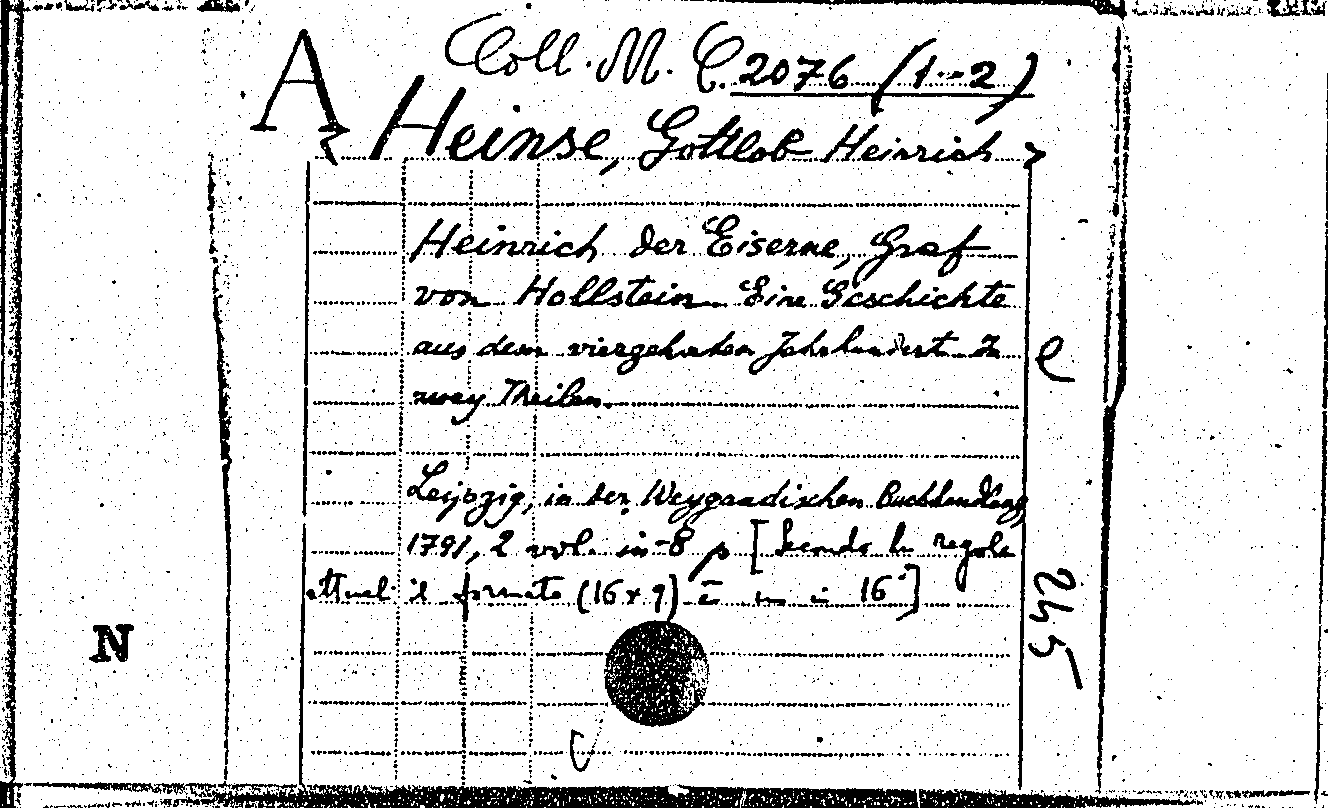 A Coll. M. C. 2076 (1-2)
Heinse, Gottlob Heinrich
Heinrich der Eiserne, Graf
von Hollstein. Eine Geschichte
aus dem viergehnten Jahrhundert. In
zwey Theilen.
Leipzig, in der Weygandischen Buchhandlung
1791, 2 vol. in-8 p [Secondo le regole
attuali il formato (16x9) è un in 16°]
e
245
N